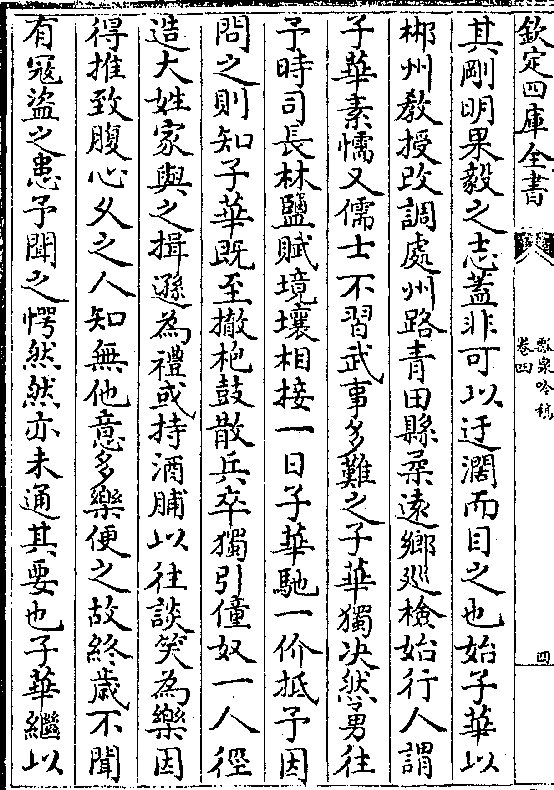 欽定四庫全書
瓢泉吟稿
卷四
四
其剛明果毅之志蓋非可以迂濶而目之也始子華以
郴州教授改調處州路青田縣柔遠鄉廵檢始行人謂
子華素懦又儒士不習武事多難之子華獨决然勇往
予時司長林鹽賦境壤相接一日子華馳一价抵予因
問之則知子華既至撤枹鼓散兵卒獨引僮奴一人徑
造大姓家與之揖遜為禮或持酒脯以往談笑為樂因
得推致腹心乆之人知無他意多樂便之故終歲不聞
有冦盜之患予聞之愕然然亦未通其要也子華繼以